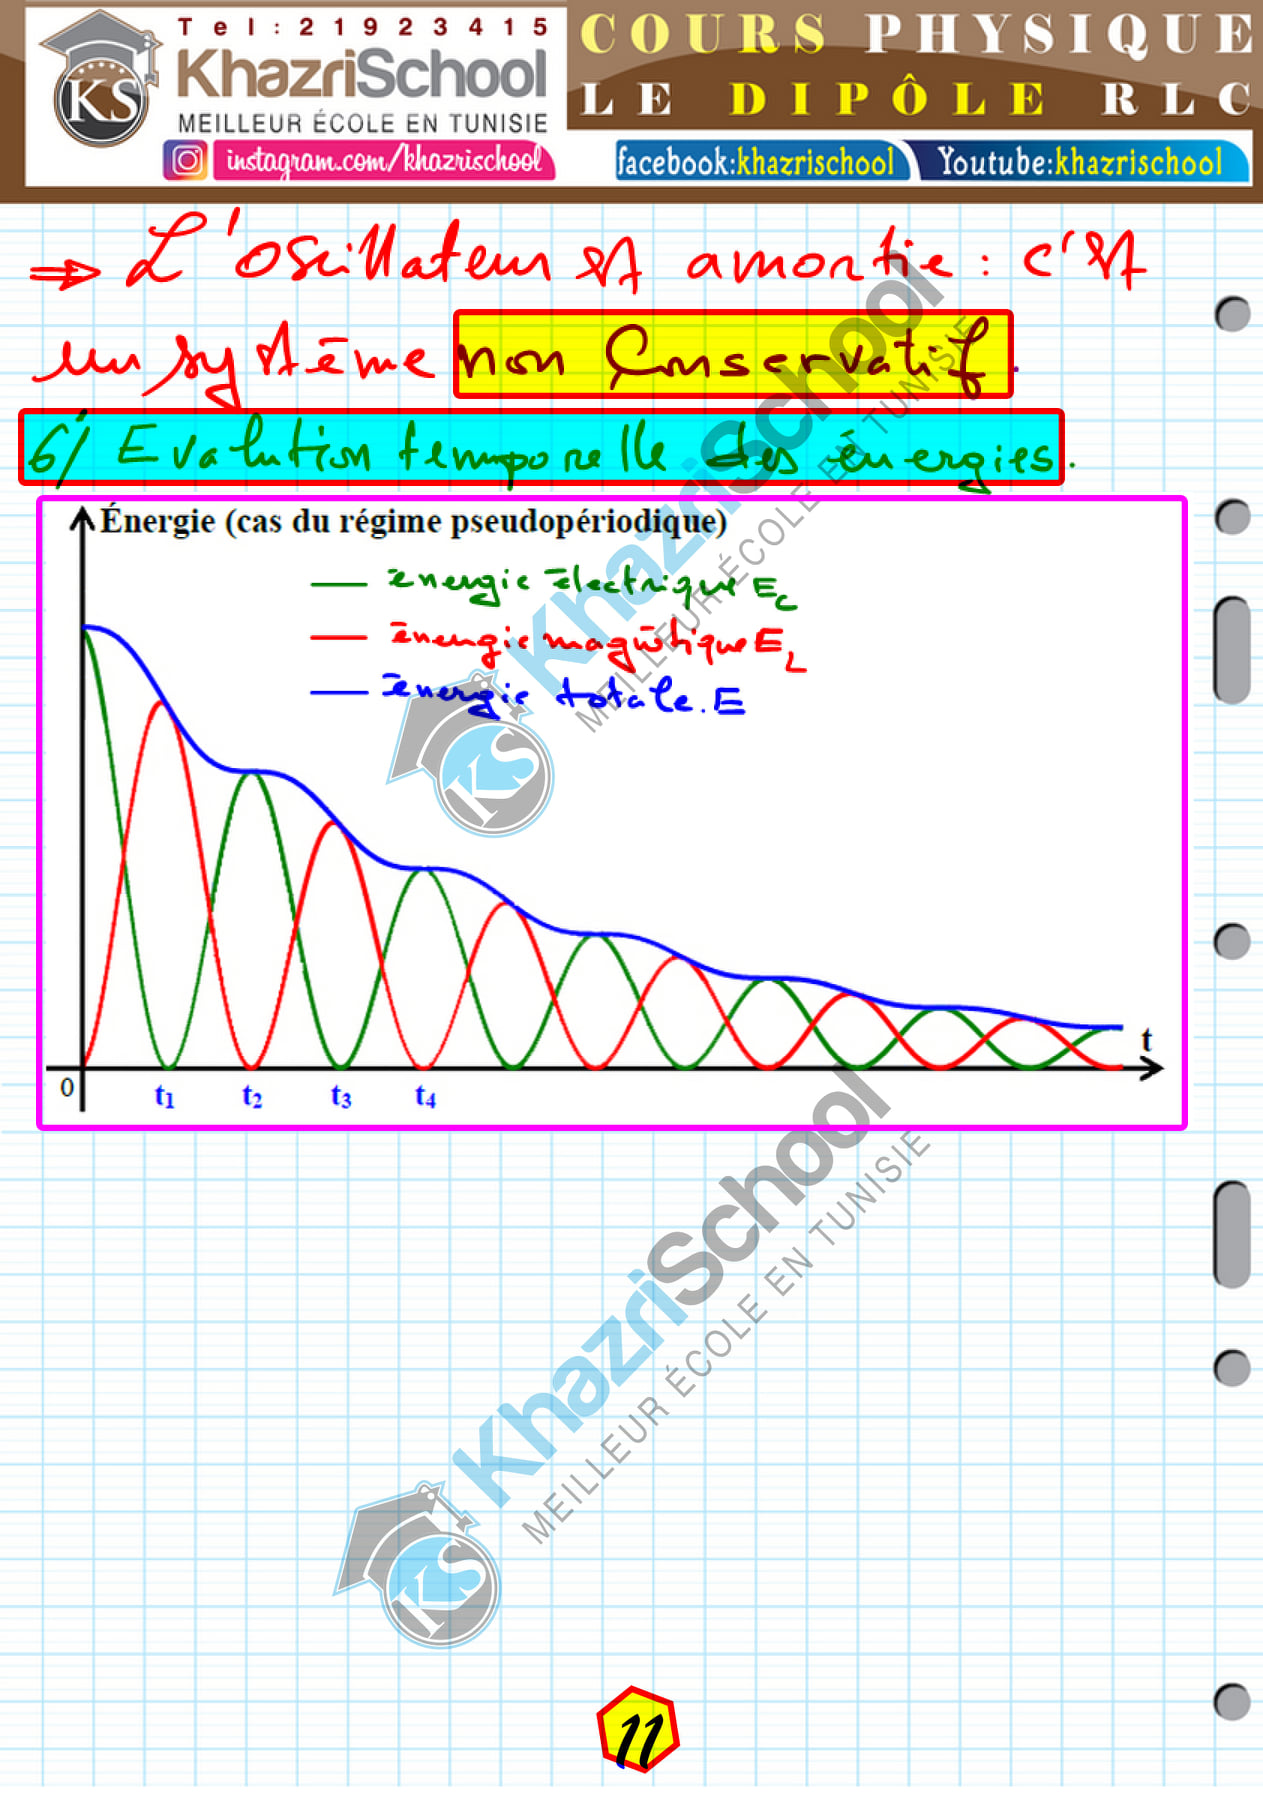 Tel:21923415
KhazriSchool
MEILLEUR ÉCOLE EN TUNISIE
instagram.com/khazrischool
COURS PHYSIQUE
LE DIPÔLE RLC
facebook:khazrischool
Youtube:khazrischool
⇒ L'oscillateur est amortie : c'est
un système non Conservatif.
6/ Evalution temporelle des énergies.
Énergie (cas du régime pseudopériodique)
énergie électrique E_C
énergie magnétique E_L
énergie totale. E
0 t₁ t₂ t₃ t₄ t
KS
KhazriSchool
MEILLEUR ÉCOLE EN TUNISIE
KS
KhazriSchool
MEILLEUR ÉCOLE EN TUNISIE
KS
11